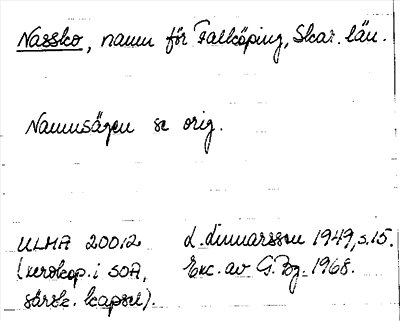 Nassko, namn för Falköping, Skar. län.
Namnsägen se orig.
ULMA 20012 L. Linnarsson 1949, s.15.
(xerokop. i SOA, Exc. av G. Bg. 1968.
särsk. kapsel).